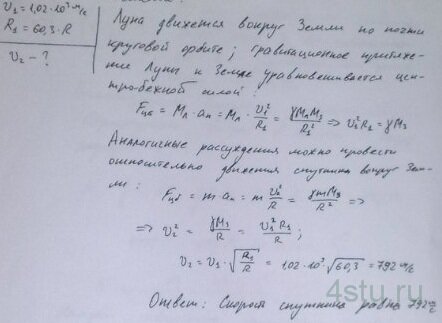 υ₁ = 1,02·10³ м/с
R₁ = 60,3·R
υ₂ – ?
Луна движется вокруг Земли по почти
круговой орбите; гравитационное притяже-
ние Луны к Земле уравновешивается цен-
тро-бежной силой:
Fцб = Mл aп = Mл · υ₁²/R₁ = γMлMз/R₁² ⇒ υ₁²R₁ = γMз
Аналогичные рассуждения можно провести
относительно движения спутника вокруг Зем-
ли:
Fцб = m aп = m υ₂²/R = γmMз/R² ⇒
⇒ υ₂² = γMз/R = υ₁²R₁/R ;
υ₂ = υ₁·√(R₁/R) = 1,02·10³·√60,3 = 792 м/с
Ответ: Скорость спутника равна 792 м/с
4stu.ru